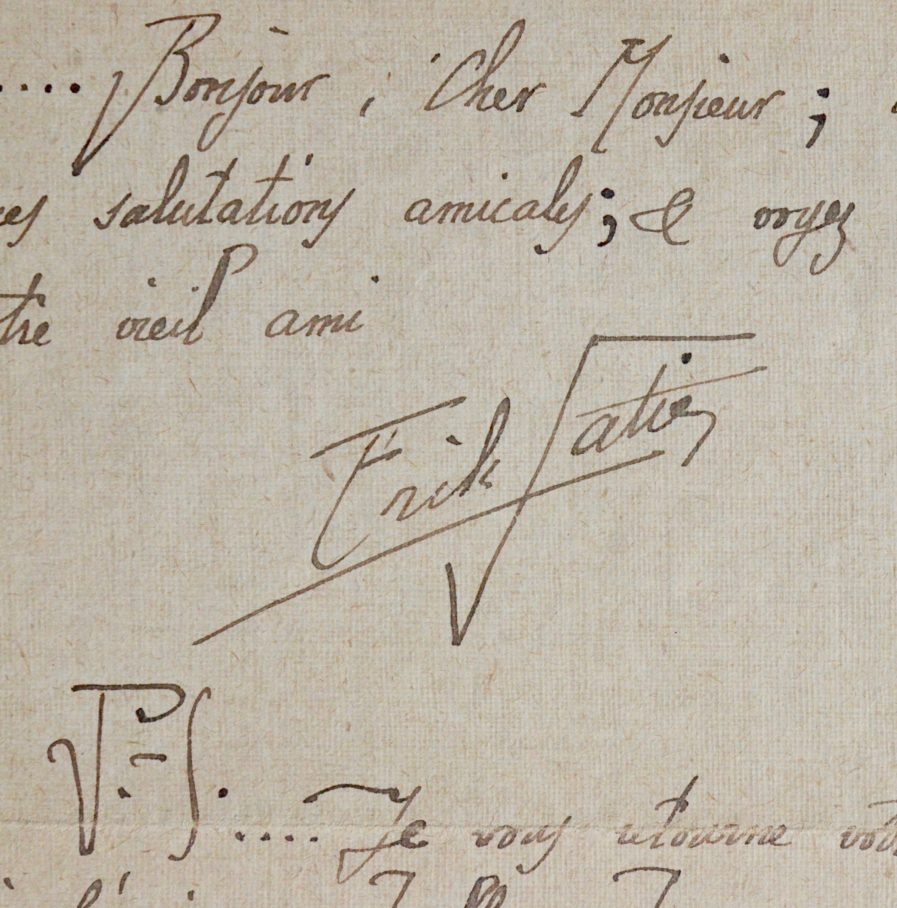 .... Bonjour, Cher Monsieur;
es salutations amicales; & voyez
tre vieil ami
Erik Satie
P.-S. .... Je vous retourne vot